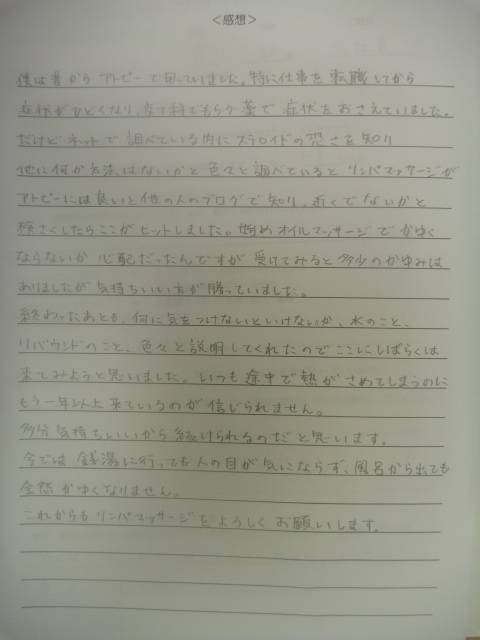 ＜感想＞
僕は昔から アトピーで困っていました。特に仕事を転職してから
症状がひどくなり、皮フ科でもらう薬で 症状をおさえていました。
だけど ネットで 調べている内に ステロイドの恐さを知り
他に何か方法はないかと 色々と調べていると リンパマッサージが
アトピーには良いと 他の人のブログで知り、近くでないかと
検さくしたらここがヒットしました。始め オイルマッサージで かゆく
ならないか 心配だったんですが 受けてみると 多少のかゆみは
ありましたが 気持ちいい方が 勝っていました。
終わったあとも、何に気をつけないといけないか、水のこと、
リバウンドのこと、色々と説明してくれたので ここにしばらくは
来てみようと思いました。いつも途中で熱がさめてしまうのに
もう一年以上来ているのが 信じられません。
多分 気持ちいいから 続けられるのだと思います。
今では 銭湯に行っても人の目が気にならず、風呂から出ても
全然かゆくなりません。
これからもリンパマッサージをよろしく お願いします。